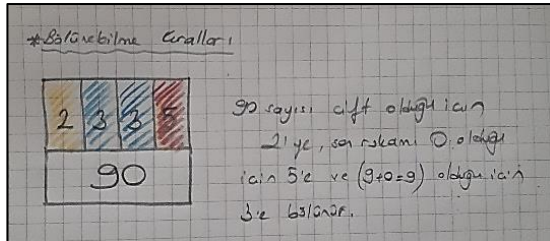 *Bölünebilme Kuralları
2 3 3 5
90
90 sayısı çift olduğu için
2'ye, son rakamı 0 olduğu
için 5'e ve (9+0=9) olduğu için
3'e bölünür.